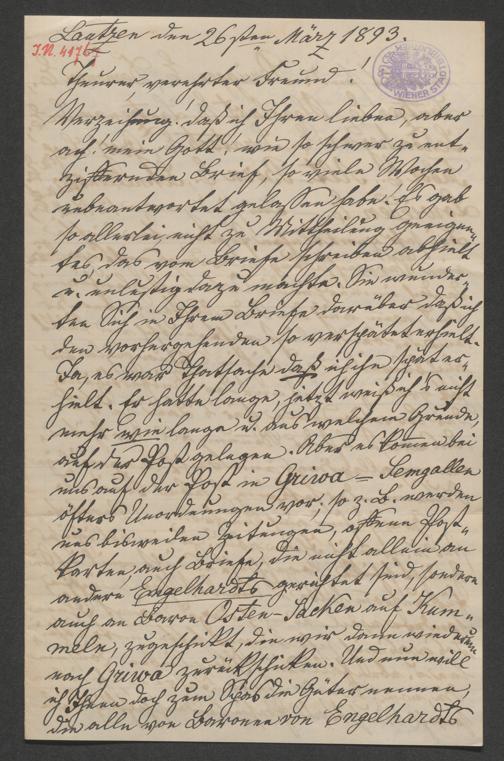 Lautzen den 26sten März 1893.
J.N. 41767
Theurer verehrter Freund!
Verzeihung! daß ich Ihren lieben, aber
ach! mein Gott! wie so schwer zu ent-
ziffernden Brief, so viele Wochen
unbeantwortet gelassen habe! Es gab
so allerlei, nicht zu Mittheilung geeigne-
tes, das vom Briefe schreiben abhielt
u. unlustig dazu machte. Sie wunder-
ten Sich in Ihrem Briefe darüber daß ich
den vorhergehenden so verspätet erhielt.
Ja, es war Thatsache daß ich ihn später er-
hielt. Er hatte lange, jetzt weiß ich's nicht
mehr wie lange u. aus welchem Grunde,
auf der Post gelegen. Aber es kommen bei
uns auf der Post in Griwa-Semgallen
öfters Unordnungen vor, so z.B. werden
uns bisweilen Zeitungen, offene Post-
karten, auch Briefe, die nicht allein an
andere Engelhardts gerichtet sind, sondern
auch an Baron Osten-Sacken auf Kum-
meln, zugeschickt, die wir dann wiederum
nach Griwa zurückschicken. Und nun will
ich Ihnen doch zum Spas die Güter nennen,
die alle von Baronen von Engelhardts
WIENER STADT